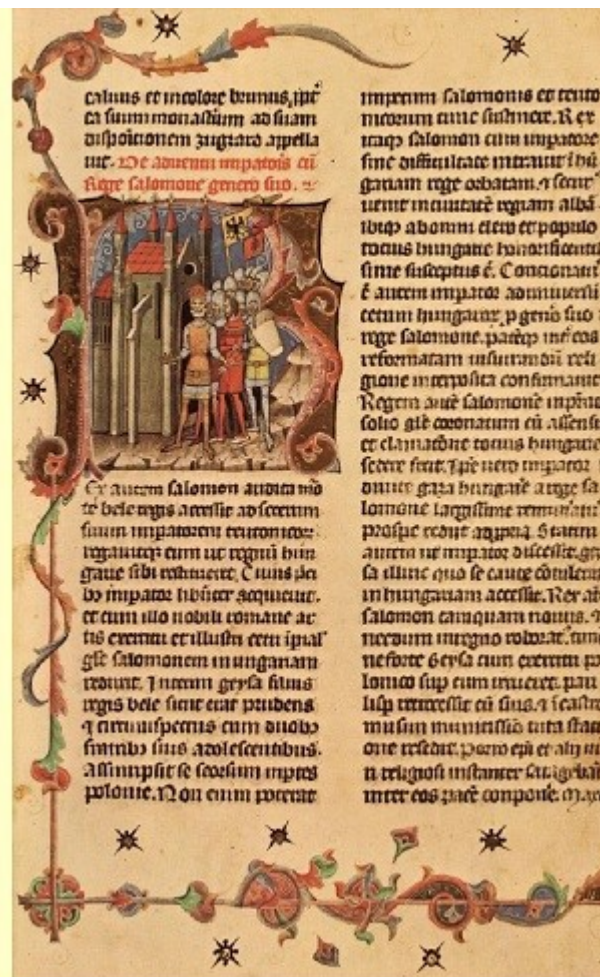 caluus et in colore brunus, ipe
ca suum monastium ad suam
dispoitionem zugrard appella
uit. De aduentu impatoris cū
Rege salomone genero suo.
Ex autem salomon audita mo
te bele regis accessit ad socerum
suum impatorem teutonicor
regauitqz eum ut regnū hun
garie sibi restitueret. Cuius
by impator libnter acquieuit.
et cum illo nobili romane ar
tis exercitu et illustri cetu ipial
glē salomonem in ungariam
reduxit. Interim geysa filius
regis bele sicut erat prudens
et circumspectus cum duobz
fratribz suis adolescentibus.
assumpsit se seorsum in ptes
polonie. Non enim poterat
impetum salomonis et teuto
nicorum tunc sustinere. Rex
itaqz salomon cum impatore
sine difficultate intrauit i hū
gariam rege orbatam. et sicut
uenit in ciuitatē regiam albā
ibiqz ab omni clero et populo
tocius hungarie honorificentis
sime susceptus ē. Concionatus
ē autem impator ad uniuersū
cetum hungarorz p genero suo
rege salomone. pacēqz inter eos
reformatam iusiurandū reli
gione interposita confirmauit
Regem autē salomonē in pr̄no
solio glē coronatum cū assensu
et clamatōne tocius hungarie
sedere fecit. Ipe uero impator
diuite gaza hungarie a rege sa
lomone largissime remunatus
prospe rediit ad ppria. Statim
autem ut impator discessit. ge
sa illinc quo se caute cōtulerat
in hungariam accessit. Rex at
salomon tamquam nouus.
necdum in regno roborat. time
ne forte Geysa cum exercitu po
lonico sup eum irrueret. pau
lisp recessit cū suis. et i castro
musun munitissīo tuta stati
one resedit. Porro epi et alij ui
ri religiosi instanter satagebāt
inter eos pacē componē.